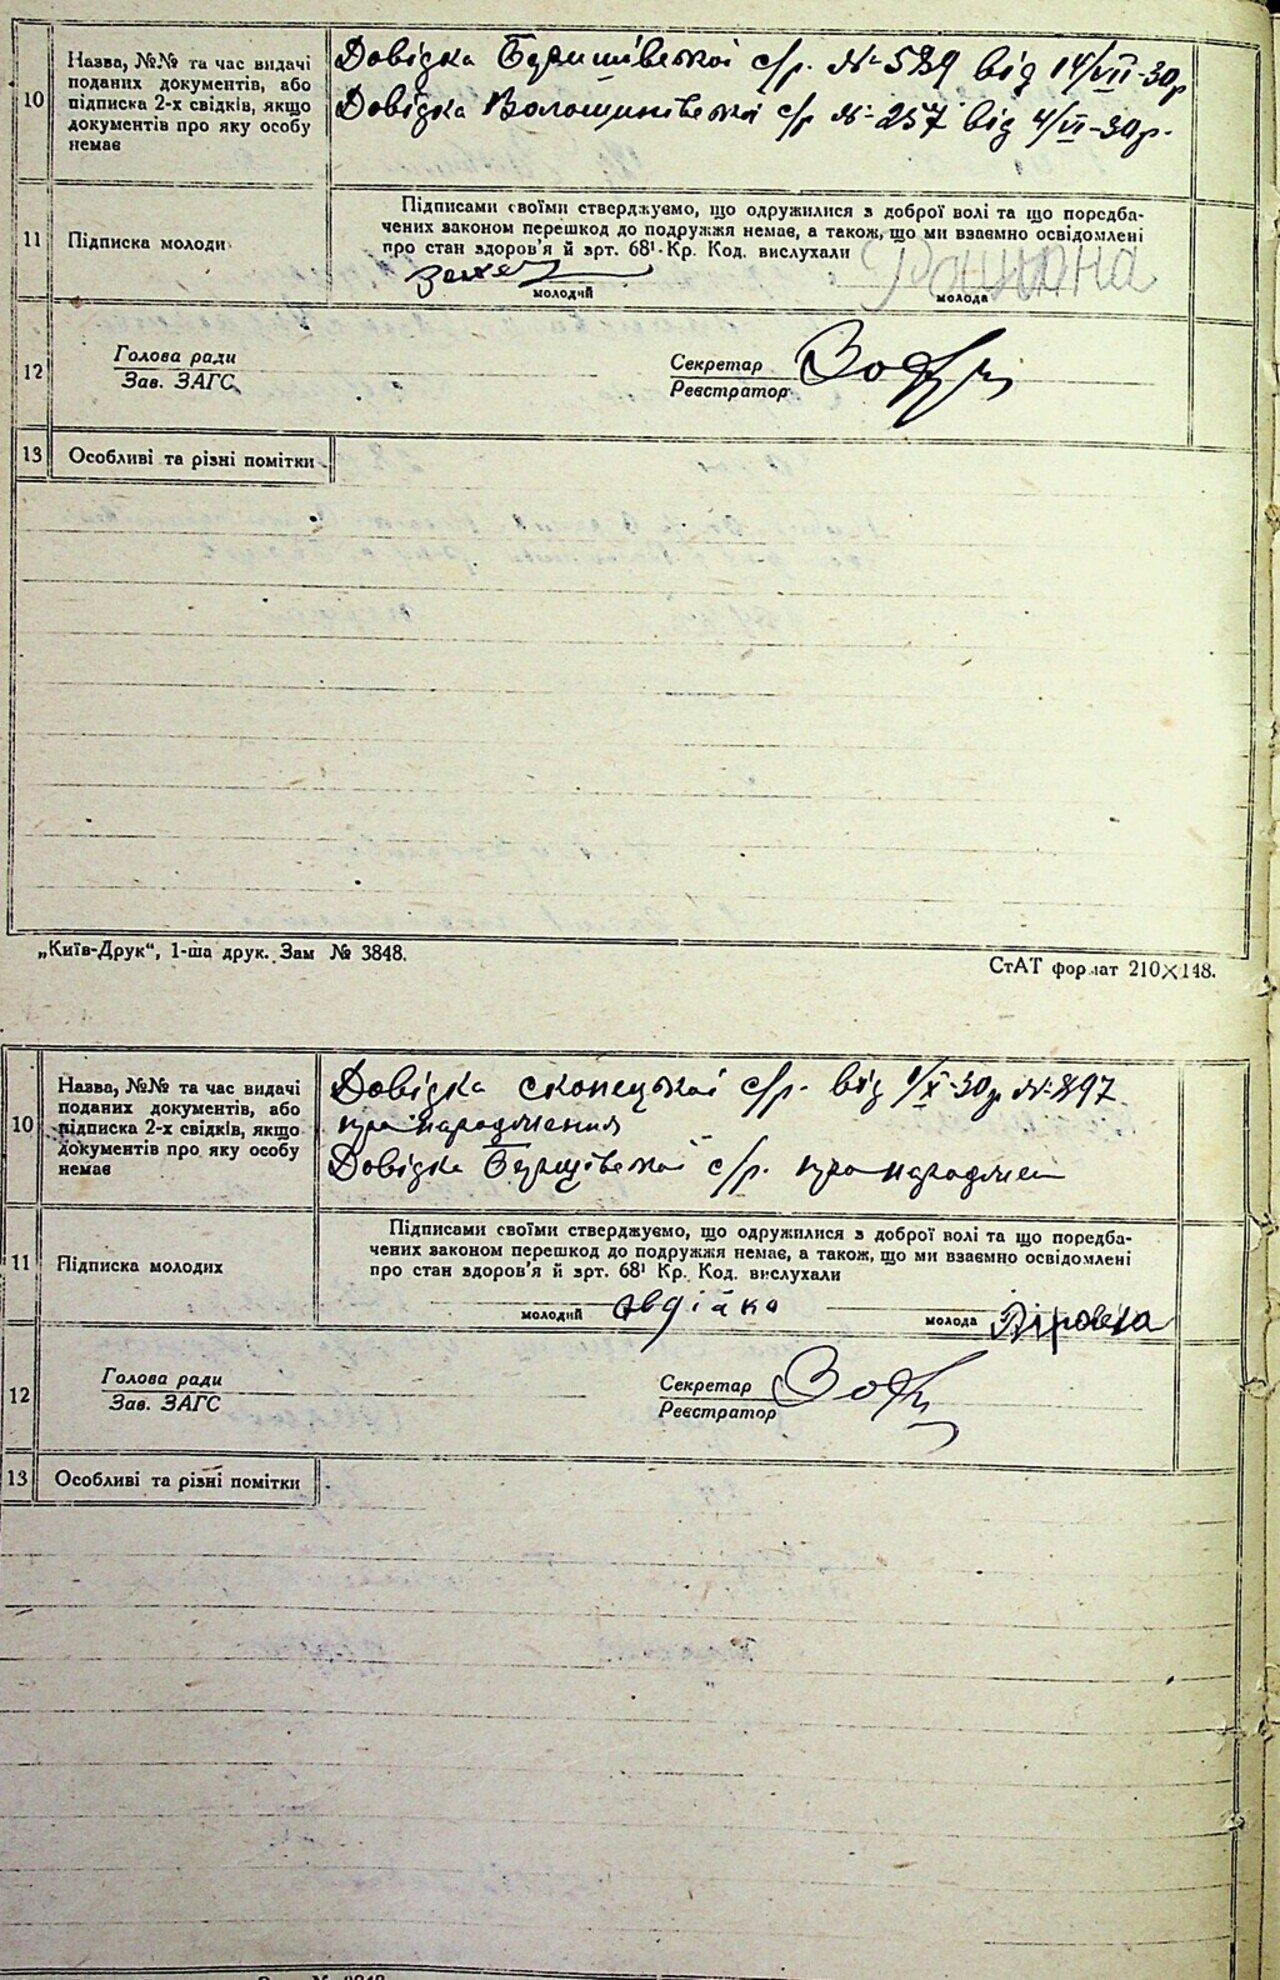 10
Назва, №№ та час видачі
поданих документів, або
підписка 2-х свідків, якщо
документів про яку особу
немає
Довідка Баришівської с/р. № 539 від 14/VII-30р
Довідка Волошинівської с/р № 257 від 4/VI-30р.
11
Підписка молоди
Підписами своїми стверджуємо, що одружилися з доброї волі та що породба-
чених законом перешкод до подружжя немає, а також, що ми взаємно освідомлені
про стан здоров'я й зрт. 68¹ Кр. Код. вислухали
молодий
молода
12
Голова ради
Зав. ЗАГС
Секретар
Реєстратор
13
Особливі та різні помітки
„Київ-Друк“, 1-ша друк. Зам № 3848.
СтАТ формат 210×148.
10
Назва, №№ та час видачі
поданих документів, або
підписка 2-х свідків, якщо
документів про яку особу
немає
Довідка скопецької с/р. від 1/X-30р № 897
про народження
Довідка с/р. про народжен
11
Підписка молодих
Підписами своїми стверджуємо, що одружилися з доброї волі та що поредба-
чених законом перешкод до подружжя немає, а також, що ми взаємно освідомлені
про стан здоров'я й зрт. 68¹ Кр. Код. вислухали
молодий Авдійко
молода
12
Голова ради
Зав. ЗАГС
Секретар
Реєстратор
13
Особливі та різні помітки